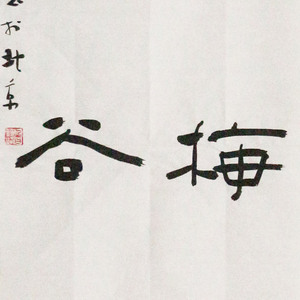 梅谷
於北京